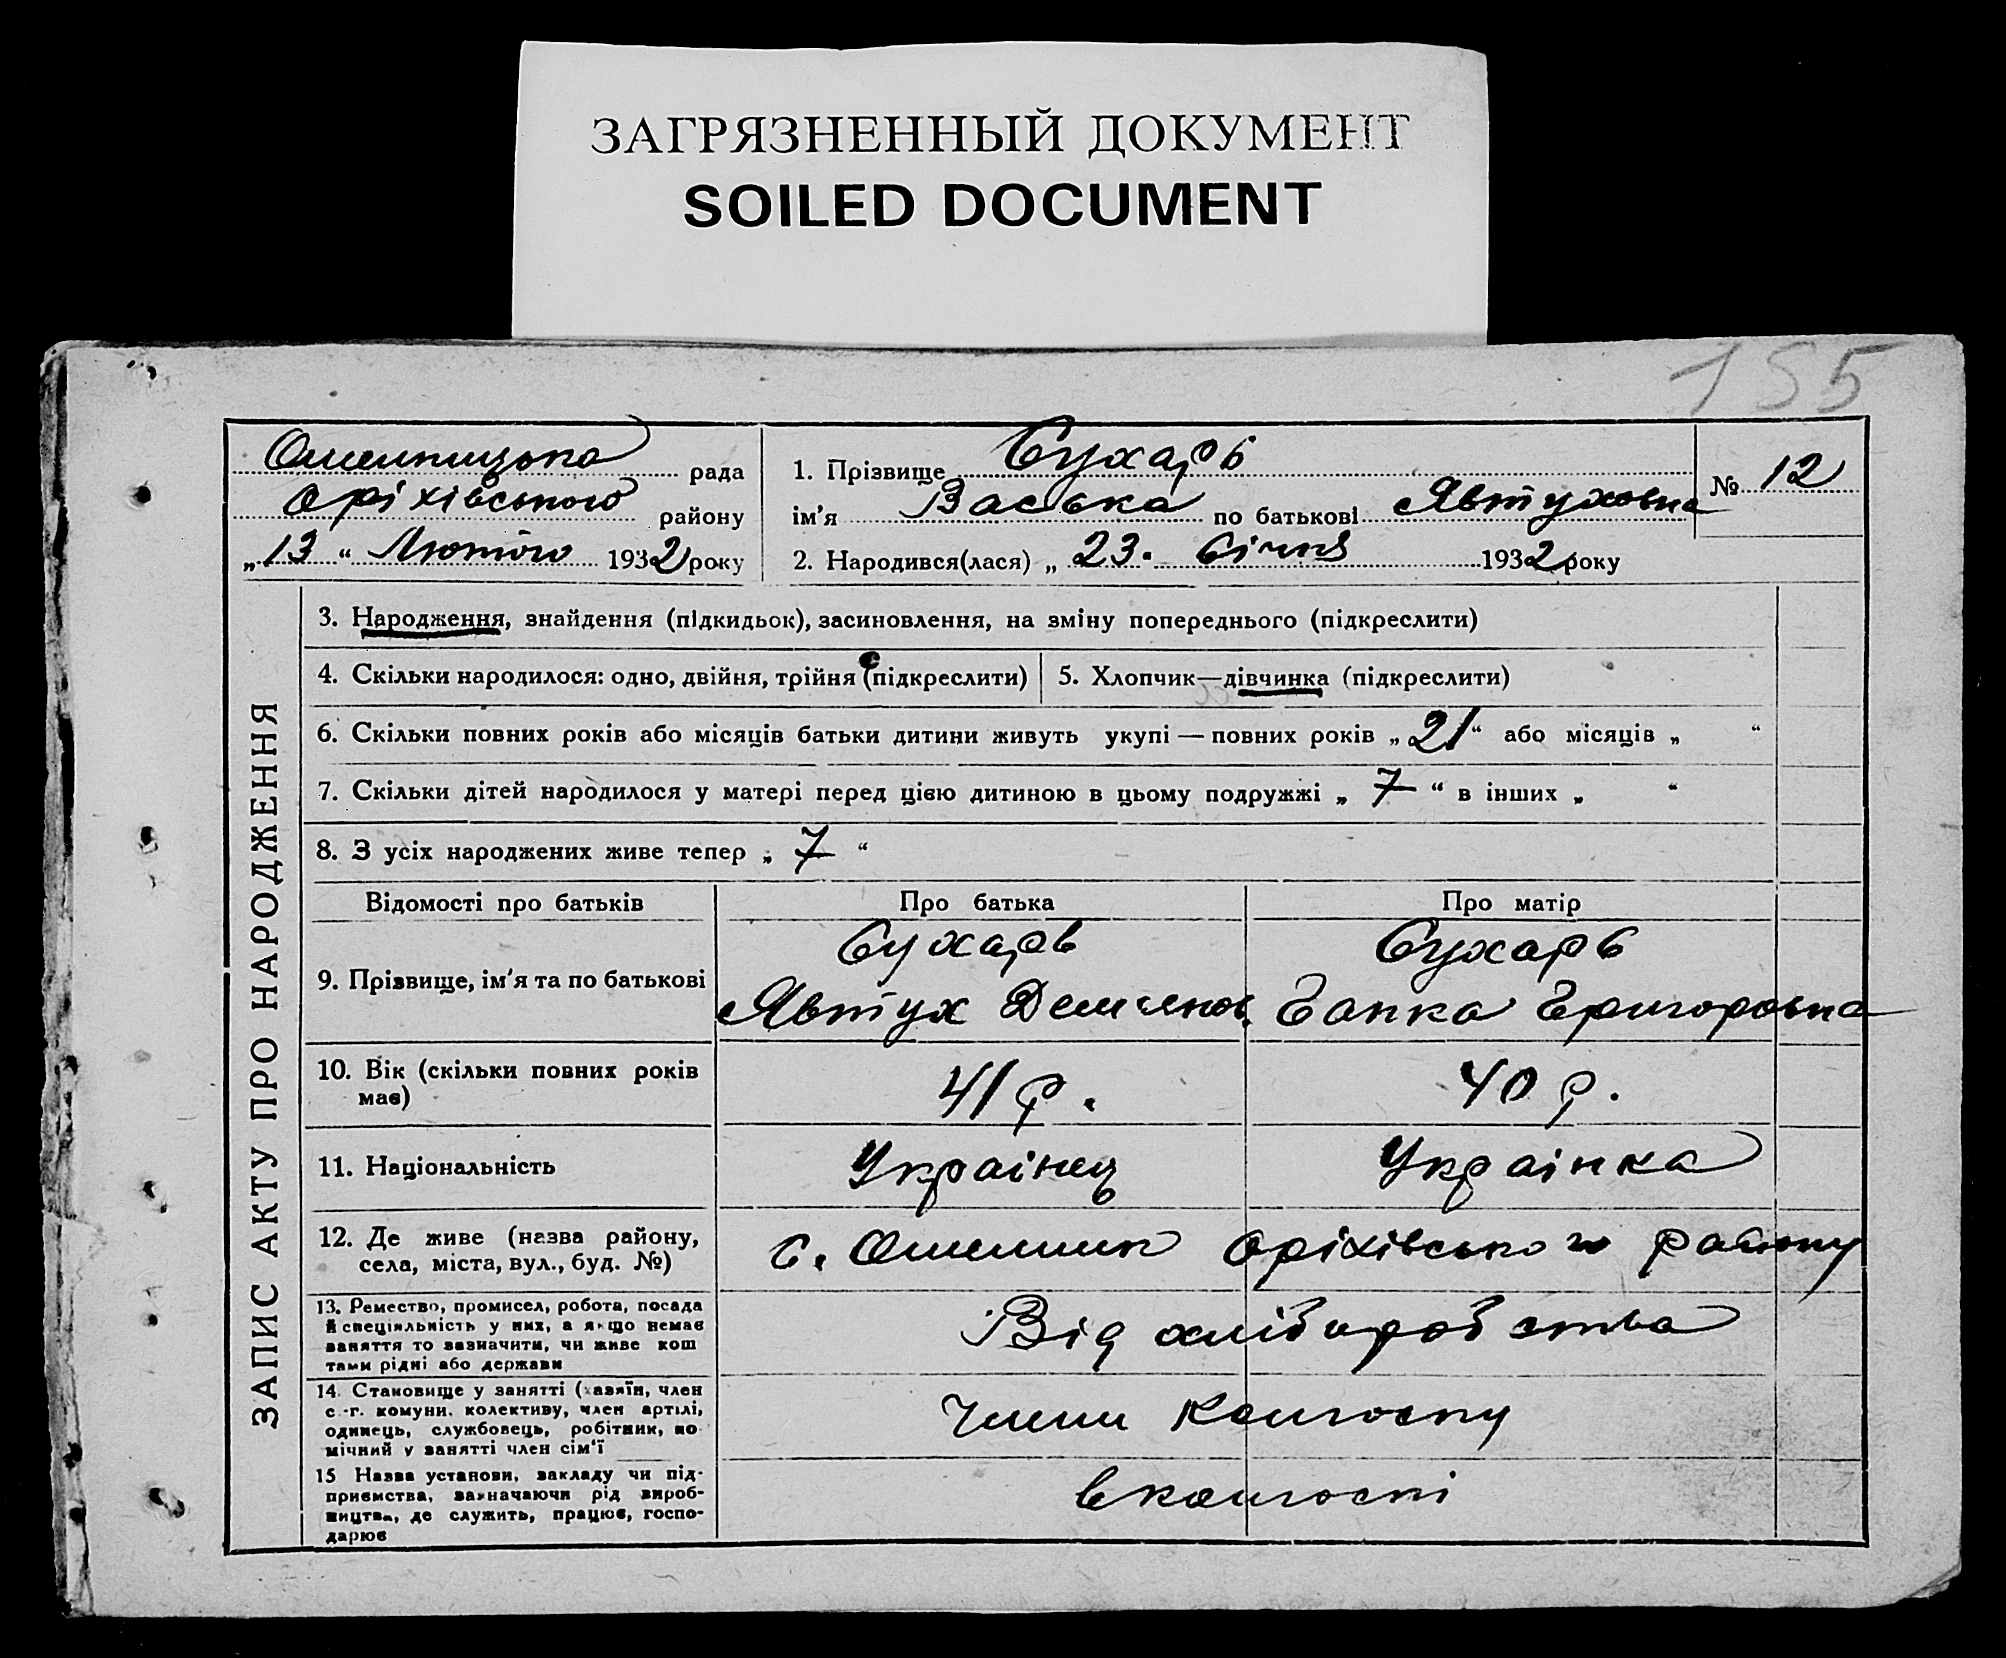 ЗАГРЯЗНЕННЫЙ ДОКУМЕНТ
SOILED DOCUMENT
155
рада
Оріхівського району
„13“ Лютого 1932 року
1. Прізвище Сухарь
ім'я Васька по батькові Явтуховна
№ 12
2. Народився(лася) „ 23. Січня 1932 року
ЗАПИС АКТУ ПРО НАРОДЖЕННЯ
3. Народження, знайдення (підкидьок), засиновлення, на зміну попереднього (підкреслити)
4. Скільки народилося: одно, двійня, трійня (підкреслити)
5. Хлопчик—дівчинка (підкреслити)
6. Скільки повних років або місяців батьки дитини живуть укупі — повних років „21“ або місяців „ “
7. Скільки дітей народилося у матері перед цією дитиною в цьому подружжі „ 7 “ в інших „ “
8. З усіх народжених живе тепер „ 7 “
Відомості про батьків
Про батька
Про матір
9. Прізвище, ім'я та по батькові
Сухарь
Явтух Демьянов.
Сухарь
Гапка Григоровна
10. Вік (скільки повних років
має)
41 р.
40 р.
11. Національність
Українец
Українка
12. Де живе (назва району,
села, міста, вул., буд. №)
с. Ошемшик Оріхівського району
13. Ремество, промисел, робота, посада
й спеціяльність у них, а якщо немає
заняття то зазначити, чи живе кош
тами рідні або держави
Від хліборобства
14. Становище у занятті (хазяїн, член
с.-г. комуни, колективу, член артілі,
одинець, службовець, робітник, по
мічний у занятті член сім'ї
Члени колгоспу
15 Назва установи, закладу чи під-
приємства, зазначаючи рід вироб-
ництва, де служить, працює, госпо-
дарює
в колгоспі